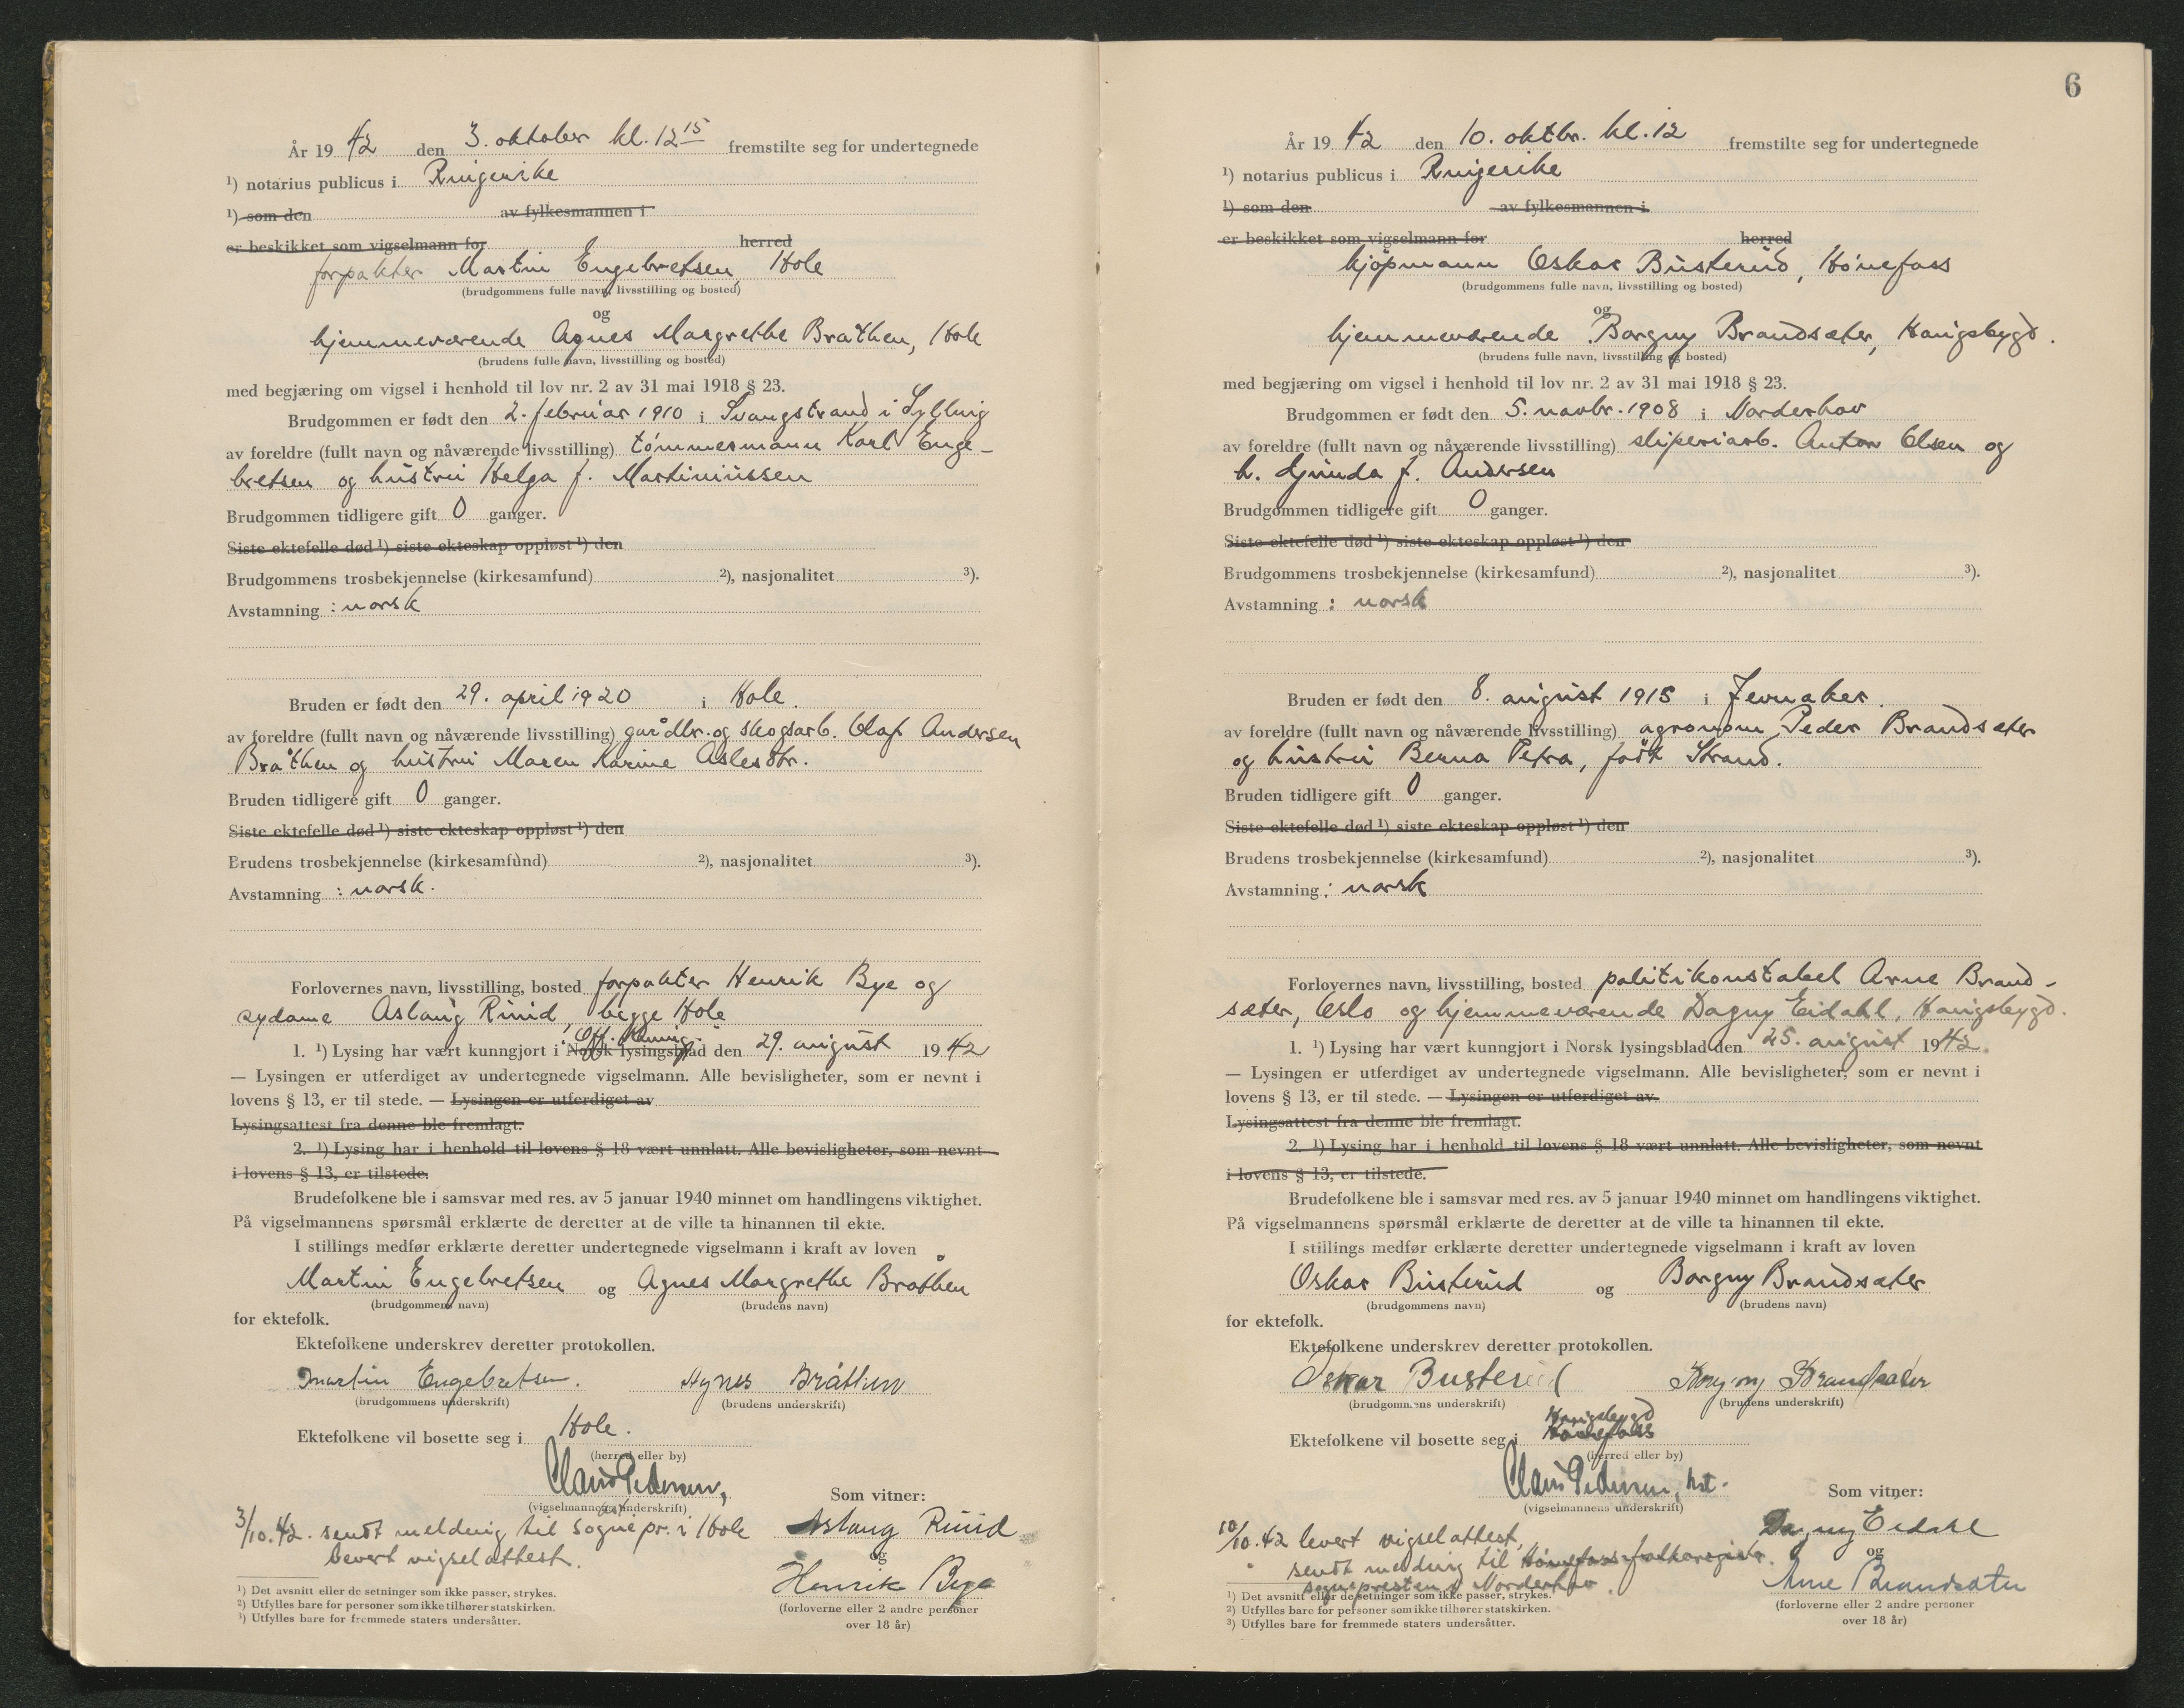 År 19 42 den 3. oktober kl. 12 15 fremstilte seg for undertegnede
¹) notarius publicus i Ringerike
¹) som den av fylkesmannen i
er beskikket som vigselmann for herred
forpakter Martin Engebretsen, Hole
(brudgommens fulle navn, livsstilling og bosted)
og
hjemmeværende Agnes Margrethe Bråthen, Hole
(brudens fulle navn, livsstilling og bosted)
med begjæring om vigsel i henhold til lov nr. 2 av 31 mai 1918 § 23.
Brudgommen er født den 2. februar 1910 i Svangstrand i Sylling
av foreldre (fullt navn og nåværende livsstilling) tømmermann Karl Enge-
bretsen og hustru Helga f. Martiniussen
Brudgommen tidligere gift 0 ganger.
Siste ektefelle død ¹) siste ekteskap oppløst ¹) den
Brudgommens trosbekjennelse (kirkesamfund) ²), nasjonalitet ³).
Avstamning : norsk
Bruden er født den 29. april 1920 i Hole.
av foreldre (fullt navn og nåværende livsstilling) gårdbr. og skogsarb. Olaf Andersen
Bråthen og hustru Maren Karine Aslesdtr.
Bruden tidligere gift 0 ganger.
Siste ektefelle død ¹) siste ekteskap oppløst ¹) den
Brudens trosbekjennelse (kirkesamfund) ²), nasjonalitet ³).
Avstamning : norsk.
Forlovernes navn, livsstilling, bosted forpakter Henrik Bye og
sydame Aslaug Rund, begge Hole
Off. kunnig.
1. ¹) Lysing har vært kunngjort i Norsk lysingsblad den 29. august 19 42
— Lysingen er utferdiget av undertegnede vigselmann. Alle bevisligheter, som er nevnt i
lovens § 13, er til stede. — Lysingen er utferdiget av
Lysingsattest fra denne ble fremlagt.
2. ¹) Lysing har i henhold til lovens § 18 vært unnlatt. Alle bevisligheter, som nevnt
i lovens § 13, er tilstede.
Brudefolkene ble i samsvar med res. av 5 januar 1940 minnet om handlingens viktighet.
På vigselmannens spørsmål erklærte de deretter at de ville ta hinannen til ekte.
I stillings medfør erklærte deretter undertegnede vigselmann i kraft av loven
Martin Engebretsen og Agnes Margrethe Bråthen
(brudgommens navn) (brudens navn)
for ektefolk.
Ektefolkene underskrev deretter protokollen.
Martin Engebretsen. Agnes Bråthen
(brudgommens underskrift) (brudens underskrift)
Ektefolkene vil bosette seg i Hole.
(herred eller by)
Claus Pedersen,
(vigselmannens underskrift)
Som vitner:
3/10.42. sendt melding til sognepr. i Hole
levert vigselattest.
Aslaug Rund
og
Henrik Bye
(forloverne eller 2 andre personer
over 18 år)
¹) Det avsnitt eller de setninger som ikke passer, strykes.
²) Utfylles bare for personer som ikke tilhører statskirken.
³) Utfylles bare for fremmede staters undersåtter.
6
År 19 42 den 10. oktbr. kl. 12 fremstilte seg for undertegnede
¹) notarius publicus i Ringerike
¹) som den av fylkesmannen i
er beskikket som vigselmann for herred
kjøpmann Oskar Busterud, Hønefoss
(brudgommens fulle navn, livsstilling og bosted)
og
hjemmeværende Borgny Brandsæter, Haugsbygd.
(brudens fulle navn, livsstilling og bosted)
med begjæring om vigsel i henhold til lov nr. 2 av 31 mai 1918 § 23.
Brudgommen er født den 5. novbr. 1908 i Norderhov
av foreldre (fullt navn og nåværende livsstilling) sliperiarb. Anton Olsen og
h. Gunda f. Andersen
Brudgommen tidligere gift 0 ganger.
Siste ektefelle død ¹) siste ekteskap oppløst ¹) den
Brudgommens trosbekjennelse (kirkesamfund) ²), nasjonalitet ³).
Avstamning : norsk
Bruden er født den 8. august 1915 i Jevnaker.
av foreldre (fullt navn og nåværende livsstilling) agronom Peder Brandsæter
og hustru Berna Petra, født Strand.
Bruden tidligere gift 0 ganger.
Siste ektefelle død ¹) siste ekteskap oppløst ¹) den
Brudens trosbekjennelse (kirkesamfund) ²), nasjonalitet ³).
Avstamning : norsk
Forlovernes navn, livsstilling, bosted politikonstabel Arne Brand-
sæter, Oslo og hjemmeværende Dagny Eidahl, Haugsbygd.
1. ¹) Lysing har vært kunngjort i Norsk lysingsblad den 25. august 19 42.
— Lysingen er utferdiget av undertegnede vigselmann. Alle bevisligheter, som er nevnt i
lovens § 13, er til stede. — Lysingen er utferdiget av
Lysingsattest fra denne ble fremlagt.
2. ¹) Lysing har i henhold til lovens § 18 vært unnlatt. Alle bevisligheter, som nevnt
i lovens § 13, er tilstede.
Brudefolkene ble i samsvar med res. av 5 januar 1940 minnet om handlingens viktighet.
På vigselmannens spørsmål erklærte de deretter at de ville ta hinannen til ekte.
I stillings medfør erklærte deretter undertegnede vigselmann i kraft av loven
Oskar Busterud og Borgny Brandsæter
(brudgommens navn) (brudens navn)
for ektefolk.
Ektefolkene underskrev deretter protokollen.
Oskar Busterud Borgny Brandsæter
(brudgommens underskrift) (brudens underskrift)
Haugsbygd
Ektefolkene vil bosette seg i Hønefoss
(herred eller by)
Claus Pedersen, kst.
(vigselmannens underskrift)
Som vitner:
10/10.42 levert vigselattest,
" sendt melding til Hønefoss folkeregister.
sognepresten i Norderhov.
Dagny Eidahl
og
Arne Brandsæter
(forloverne eller 2 andre personer
over 18 år)
¹) Det avsnitt eller de setninger som ikke passer, strykes.
²) Utfylles bare for personer som ikke tilhører statskirken.
³) Utfylles bare for fremmede staters undersåtter.